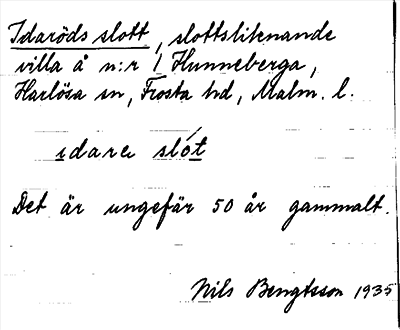 Idaröds slott, slottsliknande
villa å n:r 1 Hunneberga,
Harlösa sn, Frosta hd, Malm. l.
ıdarə slót
Det är ungefär 50 år gammalt.
Nils Bengtsson 1935